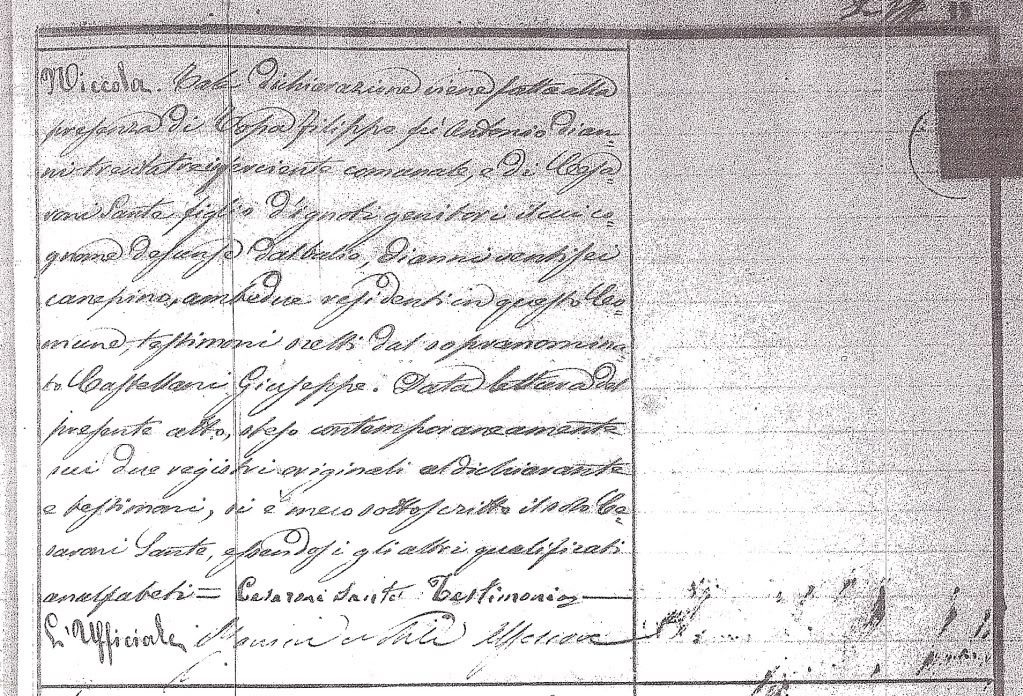 Niccola. Tale dichiarazione viene fatta alla
presenza di Filippo fu Antonio d'an
ni trentatre inserviente comunale, e di Cesa
roni Sante, figlio d'ignoti genitori il cui co
gnome desunse dal balio, d'anni ventisei
canepino, ambedue residenti in questo Co
mune, testimoni scelti dal sopranomina
to Castellani Giuseppe. Data lettura del
presente atto, steso contemporaneamente
sui due registri originali al dichiarante
e testimoni, si è meco sottoscritto il solo Ce
saroni Sante, essendosi gli altri qualificati
analfabeti = Cesaroni Sante Testimonio
L'Ufficiale